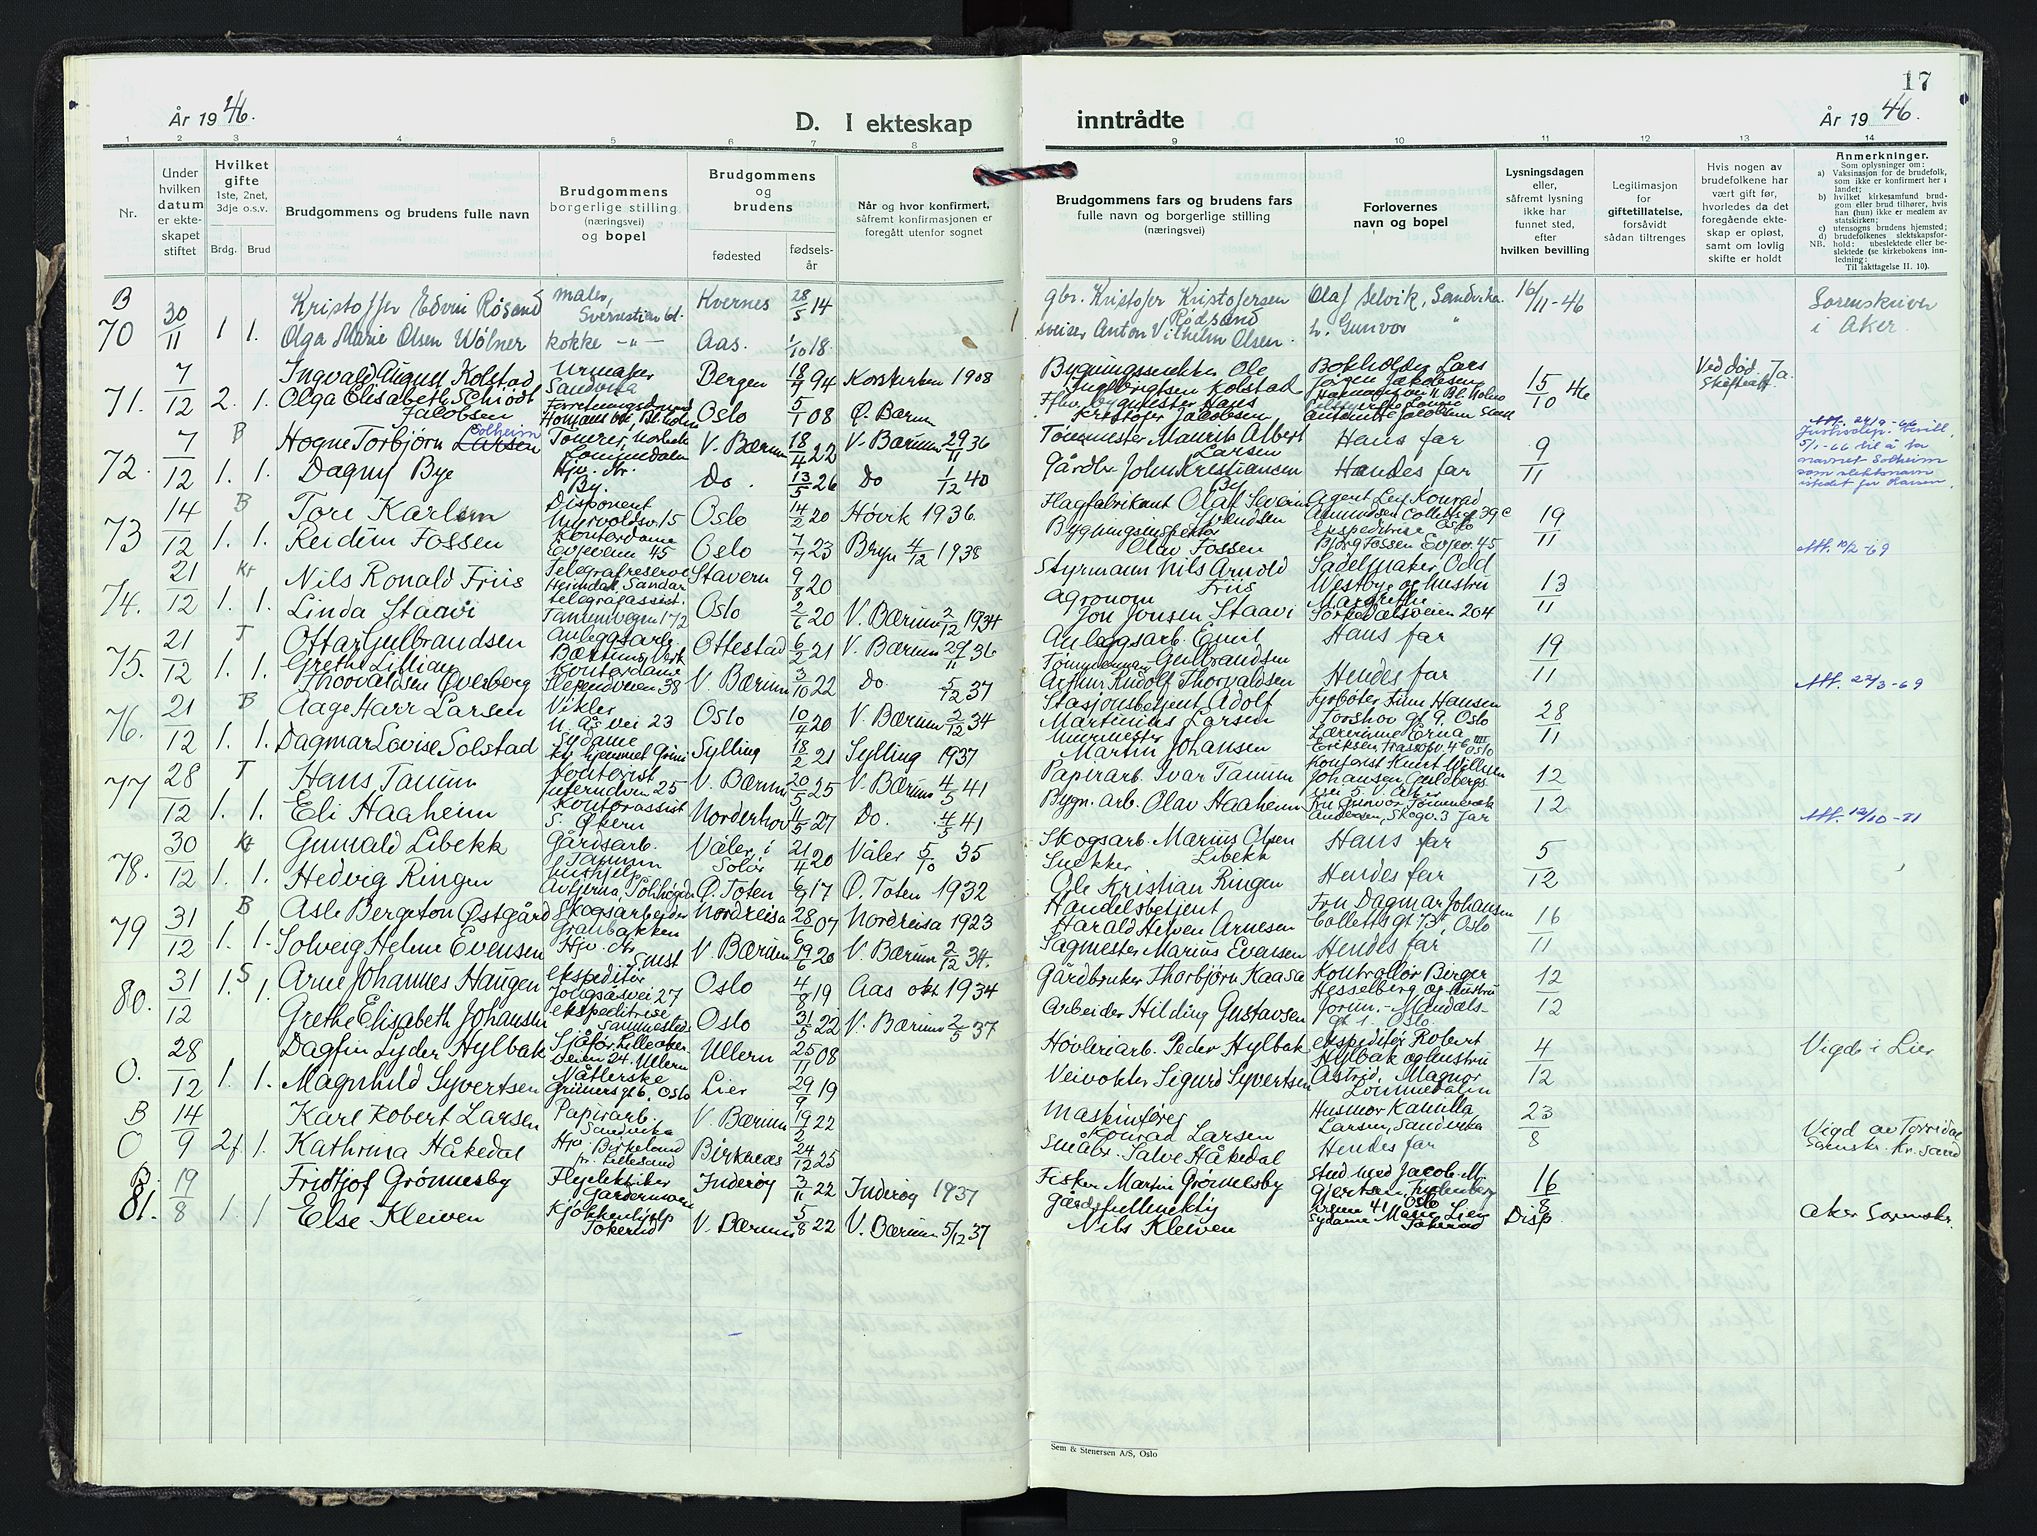 17
År 1946.
D. I ekteskap
inntrådte
År 1946.
1 2 3 4 5 6 7 8 9 10 11 12 13 14
Nr.
Under hvilken datum er ekteskapet stiftet
Hvilket gifte
1ste, 2net, 3dje o.s.v.
Brdg.
Brud
Brudgommens og brudens fulle navn
Brudgommens
borgerlige stilling
(næringsvei)
og bopel
Brudgommens
og
brudens
fødested
fødsels-
år
Når og hvor konfirmert,
såfremt konfirmasjonen er
foregått utenfor sognet
Brudgommens fars og brudens fars
fulle navn og borgerlige stilling
(næringsvei)
Forlovernes
navn og bopel
Lysningsdagen
eller,
såfremt lysning
ikke har
funnet sted,
efter
hvilken bevilling
Legitimasjon
for
giftetillatelse,
forsåvidt
sådan tiltrenges
Hvis nogen av
brudefolkene har
vært gift før,
hvorledes da det
foregående ekte-
skap er opløst,
samt om lovlig
skifte er holdt
Anmerkninger.
Som oplysninger om:
a) Vaksinasjon for de brudefolk,
som ikke er konfirmert her i
landet;
b) hvilket kirkesamfund brud-
gom eller brud tilhører, hvis
han (hun) ikke er medlem av
statskirken;
c) utensogns brudens hjemsted;
d) brudefolkenes slektskapsfor-
hold: ubeslektede eller be-
slektede (se kirkebokens inn-
ledning:
Til iakttagelse II. 10).
B 70 30/11 1 1.
Kristoffer Edvin Røsand maler, Kvernes 28/5 14 gbr. Kristofer Kristofersen Rødsand Olaf Selvik, Sandvika 16/11-46 Sorenskriver i Aker.
Olga Marie Olsen Wølner kokke -"- Aas. 1/10 18. Anton Vilhelm Olsen. Gunvor "
71. 7/12 2. 1.
Ingvald August Kolstad Urmaker Sandvika Bergen 18/7 94 Korskirken 1908 Ole Ingebrigtsen Kolstad Bokholder Lars Jørgen Jakobsen 15/10 46 Ved død. Ja.
Olga Elisabeth Schiødt Jacobsen Oslo 5/1 08 Ø. Bærum Kristofer Jacobsen
72. 7/12 B 1. 1.
Hogne Torbjørn Larsen Solheim Tømrer, Lommedalen V. Bærum 18/4 22 V. Bærum 29/11 36 Maurits Albert Larsen Hans far 9/11
Dagny Bye Hjv. Nr. By. Do. 13/5 26 Do 1/12 40 Gårdbr. John Kristiansen By Hendes far
navnet Solheim
73 14/12 B 1. 1.
Tore Karlsen Disponent Oslo 14/2 20 Høvik 1936. Flagfabrikant Olaf Severin Svendsen 39c Oslo 19/11
Reidun Fossen Kontordame Evjeveien 45 Oslo 7/7 23 Bryn 4/12 1938 Bygningsinspektør Olav Fossen Ekspeditrise Bjørg Fossen Evjev. 45 Att. 10/2-69
74. 21/12 Kt 1. 1.
Nils Ronald Friis Telegrafreserve Stavern 9/8 20 Styrmann Nils Arnold Friis Sadelmaker Odd Westby og hustru 13/11
Linda Staavi telegrafassist. Oslo 2/6 20 V. Bærum 2/12 1934 Agronom Jon Jonsen Staavi Margrethe Sørkedalsveien 204
75. 21/12 T 1. 1.
Ottar Gulbrandsen Anleggsarb. Bærums Verk Ottestad 6/2 21 V. Bærum 29/11 36 Anleggsarb. Emil Gulbrandsen Hans far 19/11
Grethe Lillian Thorvaldsen Øverberg Kontordame Slependveien 38 V. Bærum 3/10 22 Do 5/12 37 Arthur Rudolf Thorvaldsen Hendes far Att. 22/3-69
76. 21/12 B 1. 1.
Aage Harr Larsen Vikler Oslo 10/4 20 V. Bærum 2/12 34 Stasjonsbetjent Adolf Martinius Larsen Fyrbøter Finn Hansen Torshov gt 9. Oslo 28/11
Dagmar Lovise Solstad Sydame Sylling 18/2 21 Sylling 1937 Murmester Martin Johansen Lærerinne Erna Eriksen
77 28/12 T 1. 1.
Hans Tanum Kontorist V. Bærum 20/5 25 V. Bærum 4/5 41 Papirarb. Ivar Tanum Kontorist Knut Willy Johansen 12/12
Eli Haaheim Kontorassist Norderhov 4/5 27 Do. 4/5 41 Bygn. arb. Olav Haaheim Fru Gunvor Andersen, Skogv. 3 Jar Att. 12/10-71
78. 30/12 Kt 1. 1.
Gunvald Libekk Gårdsarb. Tanum Våler i Solør 21/4 20 Våler 5/10 35 Skogsarb. Marius Olsen Libekk Hans far 5/12
Hedvig Ringen Hushjelp Ø. Toten 6/9 17 Ø. Toten 1932 Snekker Ole Kristian Ringen Hendes far
79 31/12 B 1. 1.
Asle Bergeton Østgård Skogsarbejder Granbakken Nordreisa 28/6 07 Nordreisa 1923 Handelsbetjent Harald Helven Arnesen Fru Dagmar Johansen Colletts gt. 73, Oslo 16/11
Solveig Helene Evensen Hjv. Nr V. Bærum 19/6 20 V. Bærum 2/12 34. Sagmester Marius Evensen Hendes far
80. 31/12 S 1. 1.
Arne Johannes Haugen ekspeditør Oslo 4/8 19 Aas okt 1934 Gårdbruker Thorbjørn Kaasa Kontrollør Birger Hesselberg og hustru 12/12
Grethe Elisabeth Johansen ekspeditrise Oslo 31/5 22 V. Bærum 2/5 37 Arbeider Hilding Gustavsen Jorun. - Mandals- gt 1. Oslo.
O. 28/12 1. 1.
Dagfin Lyder Hylbak Sjåfør, Lilleaker- veien 24. Ullern Ullern 25/11 08 Høvleriarb. Peder Hylbak ekspeditør Robert Hylbak og hustru 4/12 Vigde i Lier
Magnhild Syvertsen Grüners gt 6. Oslo Lier 29/9 19 Veivokter Sigurd Syvertsen Astrid. Magnor Lommedalen
B O 14/9 2f. 1.
Karl Robert Larsen Papirarb. Sandvika V. Bærum 19/2 22 Maskinfører Konrad Larsen Husmor Kamilla Larsen, Sandvika 23/8 Vigd av Torridal
Kathrina Håkedal Hjv. Birkeland pr. Lillesand Birkenes 24/12 25 Småbr. Salve Håkedal Hendes far Sorenskr. Kr. Sand
B. 81. 19/8 1. 1
Fridtjof Grönnesby Flyelektriker Gardermoen Inderøy 3/11 22 Inderøy 1937 Fisker Martin Grönnesby Stud med Jacob M. Gjertsen 16/8
Else Kleiven Kjøkkenhjelp Tokerud V. Bærum 5/8 22 V. Bærum 5/12 37 Nils Kleiven Sydame Marie Lien Tokerud Disp. Aker Sorenskr.
Sem & Stenersen A/S, Oslo